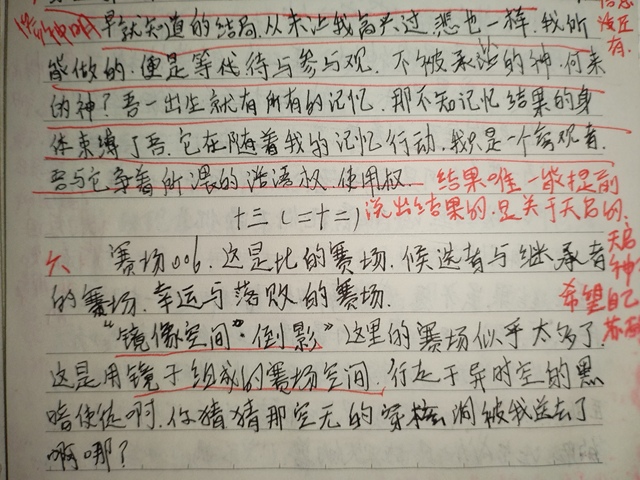 早就知道的结局.从未让我高兴过.悲也一样.我所
能做的.便是等代待与参与观.不被承认的神.何来
的神?吾一出生就有所有的记忆.那不知记忆结果的身
体束缚了吾.它在随着我的记忆行动.我只是一个客观者.
吾与它争着所谓的话语权.使用权.
结果唯一能提前
说出结果的.是关于天启的.
十三(二十二)
六 赛场006.这是比的赛场.候选者与继承者
的赛场.幸运与落败的赛场.
"镜像空间"·倒影》这里的赛场似乎太多了.
这是用镜子组成的赛场空间.行走于异时空的黑
暗使徒啊.你猜猜那空无的穿梭洞被我送去了
啊哪?
天启
神
希望自己